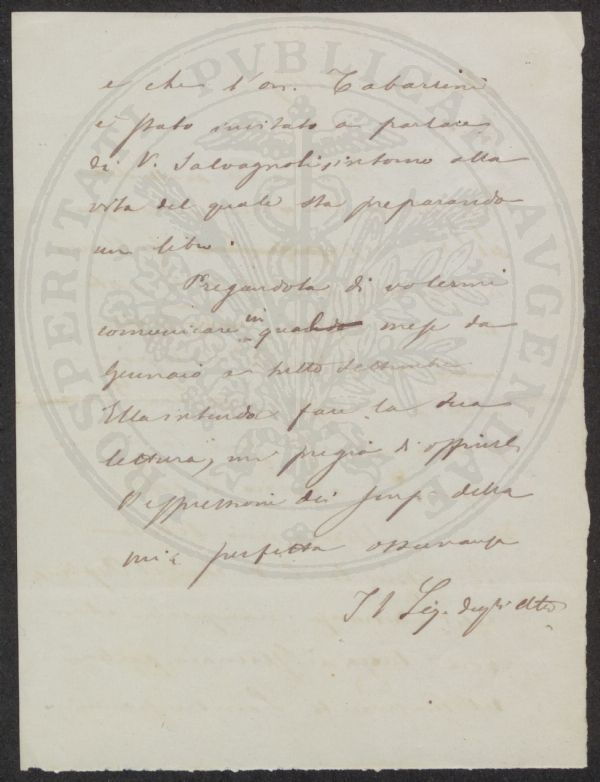 e che l'on. Tabarrini
è stato invitato a parlare
di V. Salvagnoli, intorno alla
vita del quale sta preparando
un libro.
Pregandola di volermi
comunicare in qual mese da
Gennaio a tutto Settembre
Ella intenda fare la sua
lettura, mi pregio di
espressioni della
mia perfetta osservanza
Il Seg. degli Atti
PROSPERITATI PVBLICAE AVGENDAE